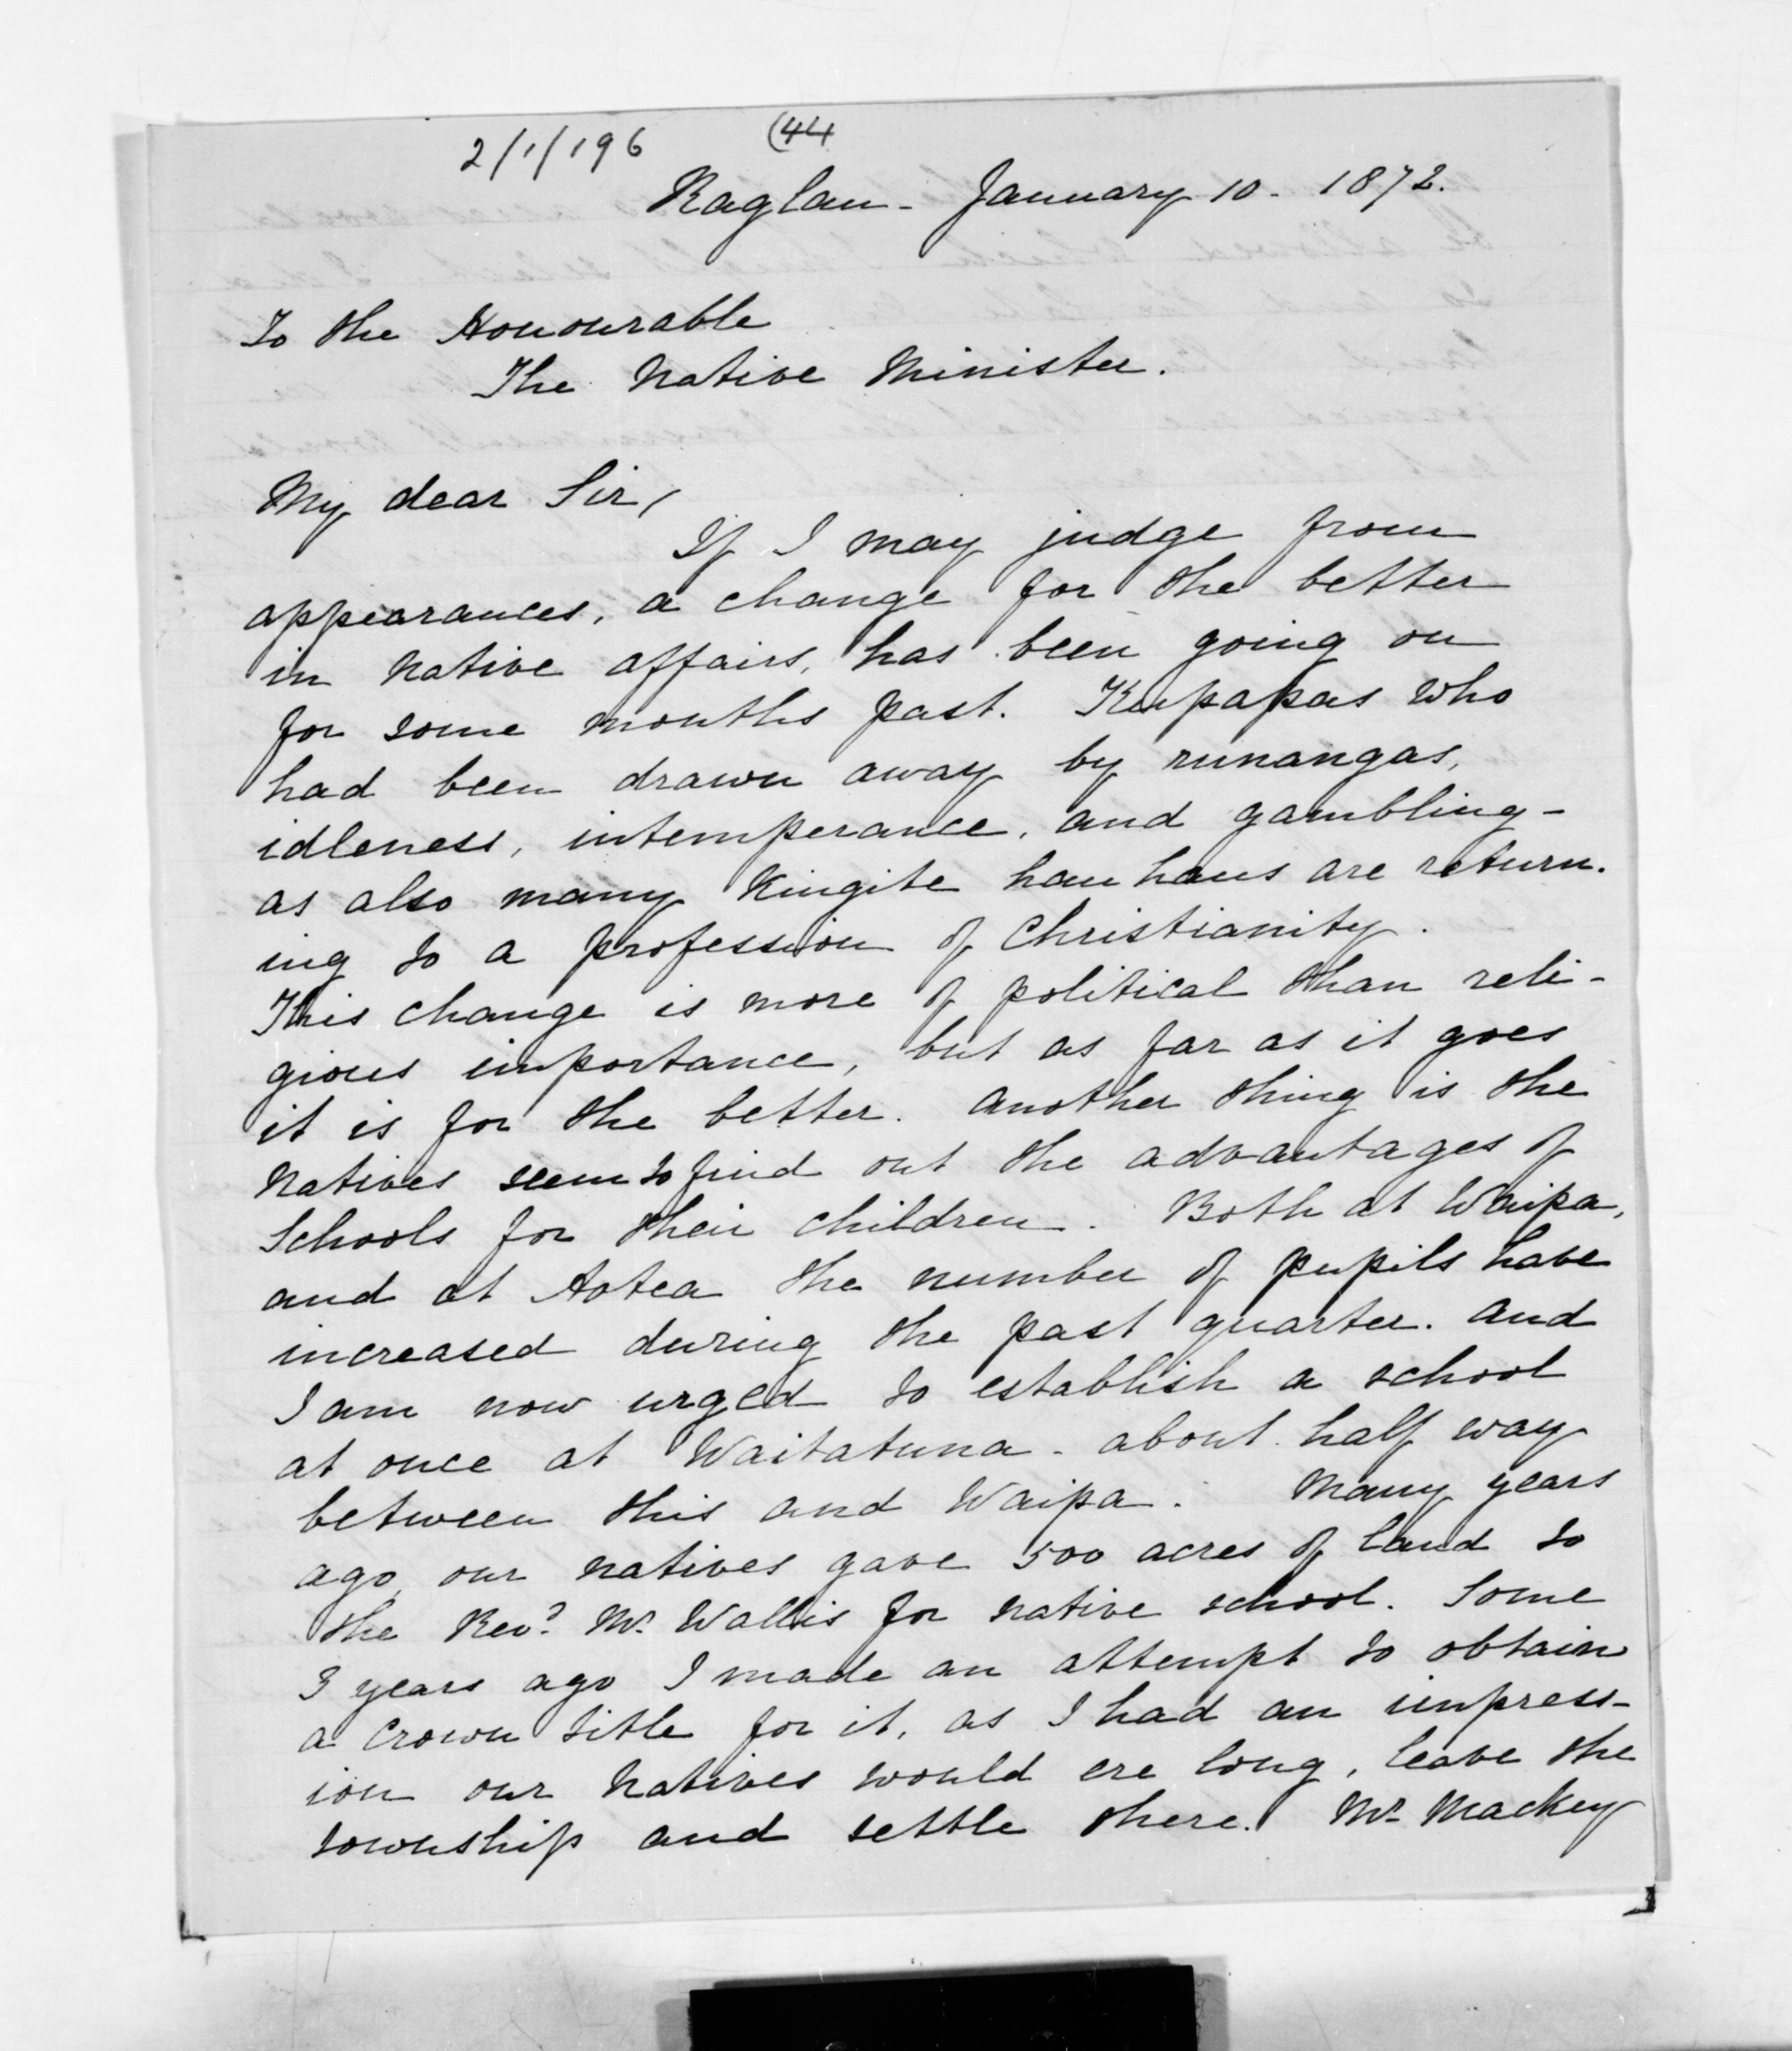 2/1/196 (44
Raglan - January 10 - 1872.
To the Honourable
The Native Minister.
My dear Sir,
If I may judge from
appearances, a change for the better
in native affairs, has been going on
for some months past. Kupapas who
had been drawn away by runangas,
idleness, intemperance, and gambling -
as also many Kingite hau haus are return-
ing to a profession of Christianity.
This change is more of political than reli-
gious importance, but as far as it goes
it is for the better. Another thing is the
Natives seem to find out the advantages of
Schools for their children. Both at Waipa,
and at Aotea the number of pupils have
increased during the past quarter. And
I am now urged to establish a school
at once at Waitatuna - about half way
between this and Waipa. Many years
ago, our natives gave 500 acres of land to
the Revd. Mr. Wallis for native school. Some
3 years ago I made an attempt to obtain
a Crown title for it, as I had an impress-
ion our Natives would ere long, leave the
township and settle there. Mr. Mackey